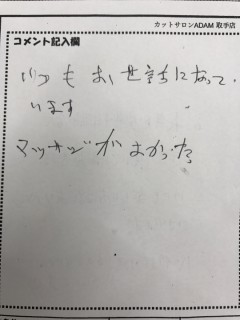 カットサロンADAM 取手店
コメント記入欄
いつもお世話になって
います
マッサージがよかった